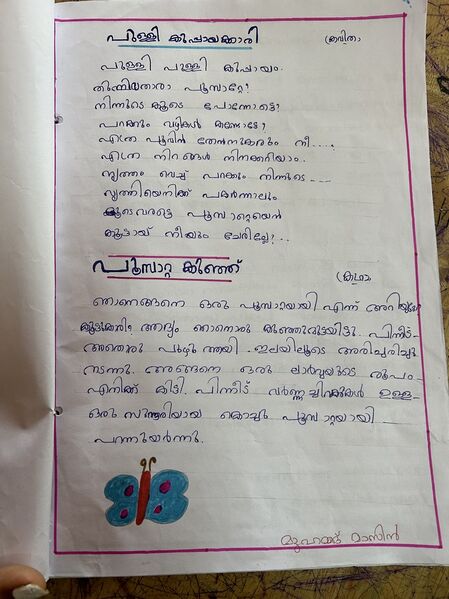 പുള്ളി കുപ്പായക്കാരി
(കവിത)
പുള്ളി പുള്ളി കുപ്പായം
തുന്നിയതാരാ പൂമ്പാറ്റേ?
നിന്നുടെ കൂടെ പോന്നോട്ടെ?
പറക്കും വഴികൾ കണ്ടോട്ടേ?
എത്ര പൂവിൻ തേൻനുകരും നീ....
എത്ര നിറങ്ങൾ നിനക്കറിയാം..
നൃത്തം വെച്ച് പറക്കും നിന്നുടെ ---
നൃത്തിയെനിക്ക് പകർന്നാലും
കൂടെവരട്ടെ പൂമ്പാറ്റെയെൻ
കൂട്ടായ് നീയും ചേരില്ലേ?..
പൂമ്പാറ്റ കുഞ്ഞ്
(കഥ)
ഞാനെങ്ങനെ ഒരു പൂമ്പാറ്റയായി എന്ന് അറിയുമോ
കൂട്ടുകാരേ? ആദ്യം ഞാനൊരു കുഞ്ഞുമുട്ടയിട്ടു. പിന്നീട്
അതൊരു പുഴു ആയി. ഇലയിലൂടെ അരിച്ചരിച്ചു
നടന്നു. അങ്ങനെ ഒരു ലാർവ്വയുടെ രൂപം
എനിക്ക് കിട്ടി. പിന്നീട് വർണ്ണച്ചിറകുകൾ ഉള്ള
ഒരു സുന്ദരിയായ കൊച്ചു പൂമ്പാറ്റയായി
പറന്നുയർന്നു.
മുഹമ്മദ് മാസിൻ